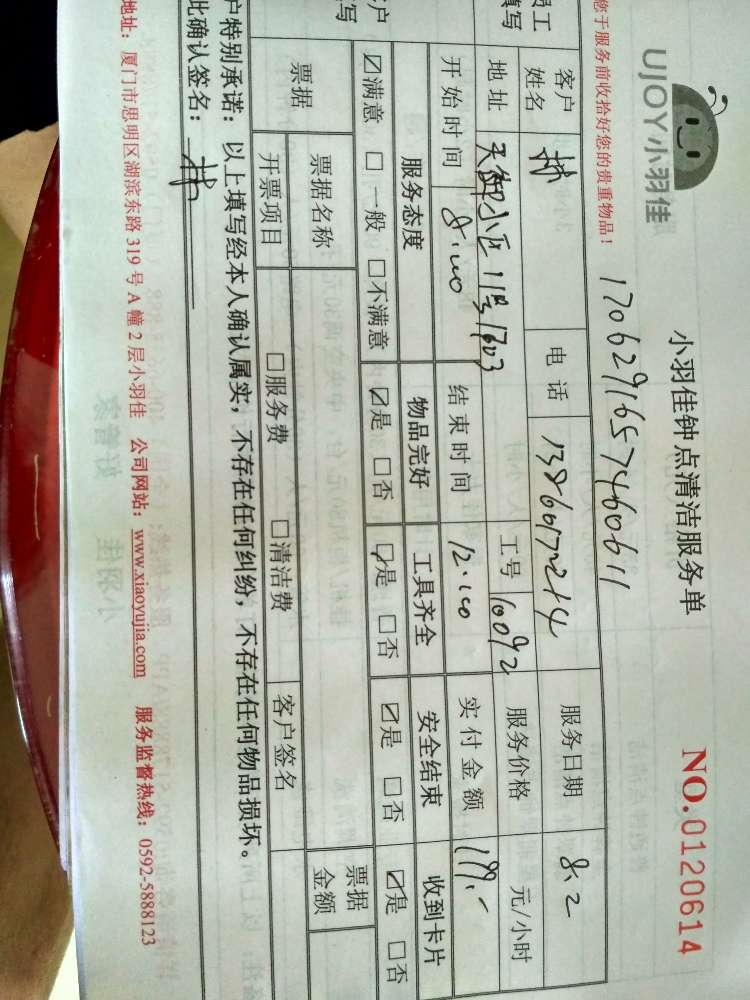 UJOY小羽佳
小羽佳钟点清洁服务单
NO.0120614
您于服务前收拾好您的贵重物品！
1706291657460611
员工
填写
客户
姓名
林
电 话
服务日期
8.2
地 址
天御小区11号1703
工号
10092
服务价格
元/小时
开始时间
8:00
结束时间
12:00
实付金额
199.-
客户
写
服务态度
物品完好
工具齐全
安全结束
收到卡片
☑满意 □一般 □不满意
☑是 □否
☑是 □否
☑是 □否
☑是 □否
票据
票据名称
票据
金额
开票项目
□服务费
□清洁费
客户签名
户特别承诺：以上填写经本人确认属实，不存在任何纠纷，不存在任何物品损坏。
此确认签名：林
地址：厦门市思明区湖滨东路 319 号 A 幢 2 层小羽佳 公司网站：www.xiaoyujia.com 服务监督热线：0592-5888123